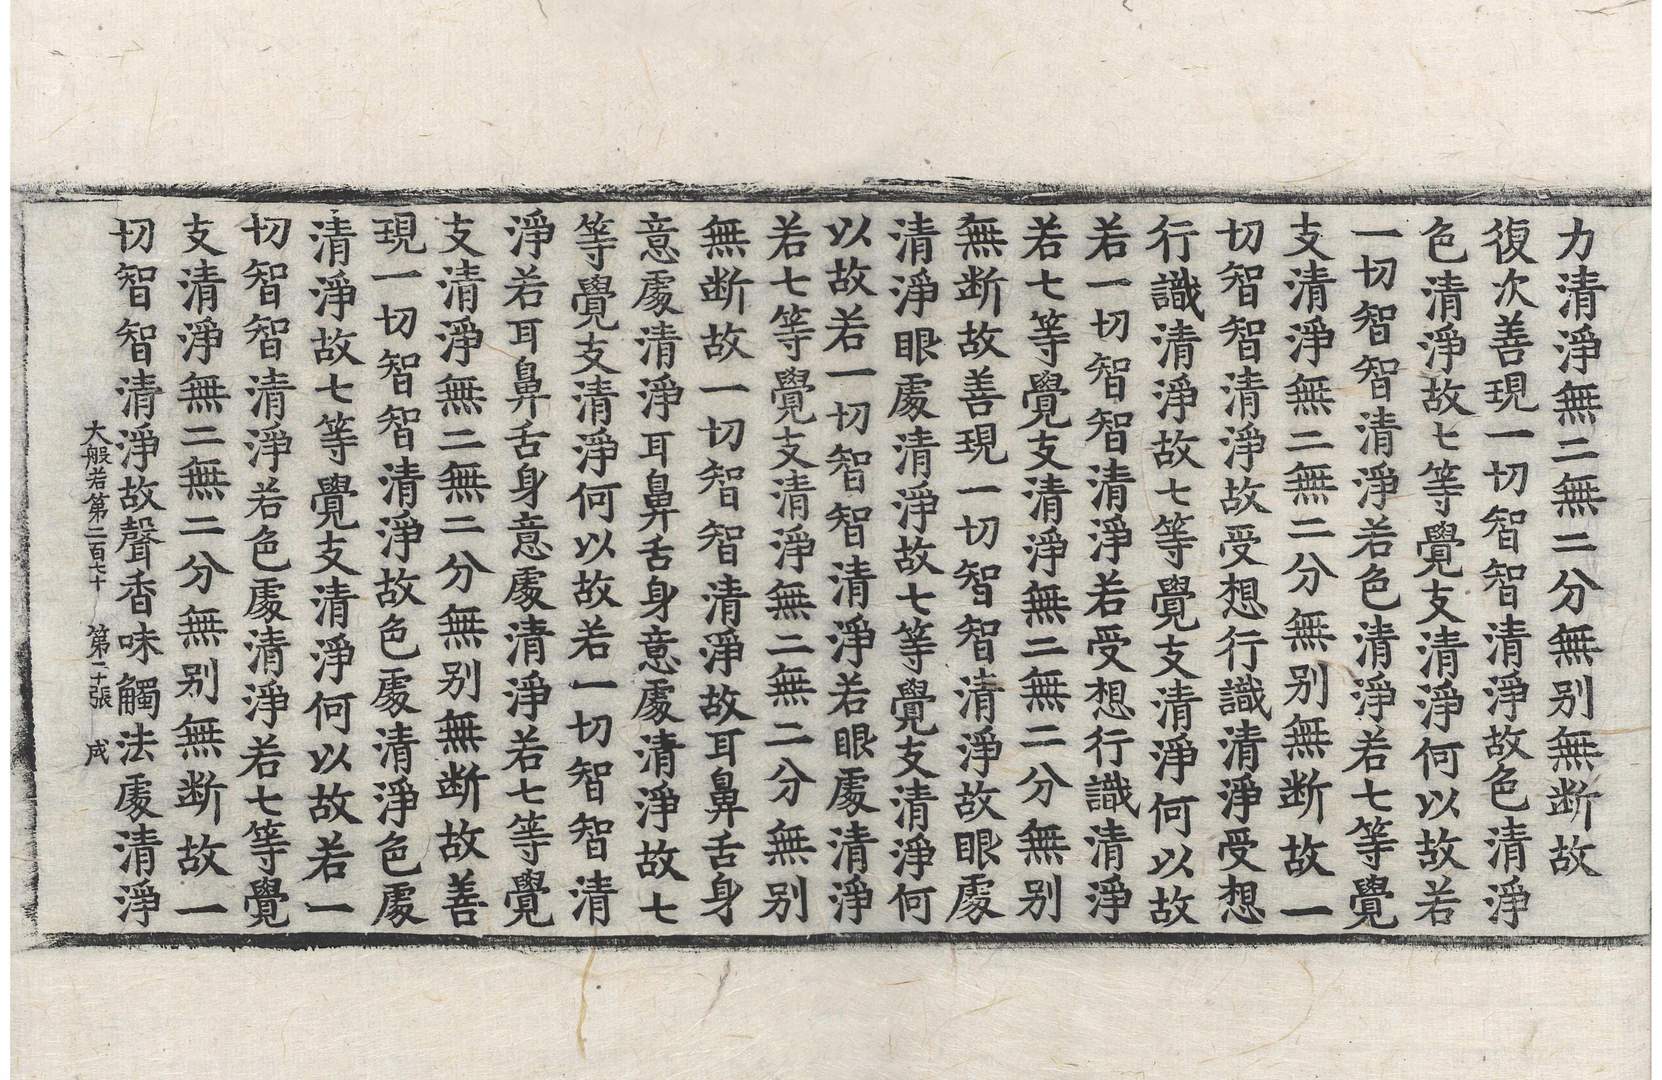 力清淨無二無二分無别無断故
復次善現一切智智清淨故色清淨
色清淨故七等覺支清淨何以故若
一切智智清淨若色清淨若七等覺
支清淨無二無二分無别無断故一
切智智清淨故受想行識清淨受想
行識清淨故七等覺支清淨何以故
若一切智智清淨若受想行識清淨
若七等覺支清淨無二無二分無别
無断故善現一切智智清淨故眼處
清淨眼處清淨故七等覺支清淨何
以故若一切智智清淨若眼處清淨
若七等覺支清淨無二無二分無别
無断故一切智智清淨故耳鼻舌身
意處清淨耳鼻舌身意處清淨故七
等覺支清淨何以故若一切智智清
淨若耳鼻舌身意處清淨若七等覺
支清淨無二無二分無别無断故善
現一切智智清淨故色處清淨色處
清淨故七等覺支清淨何以故若一
切智智清淨若色處清淨若七等覺
支清淨無二無二分無别無断故一
切智智清淨故聲香味觸法處清淨
大般若第二百七十 第二十張 成